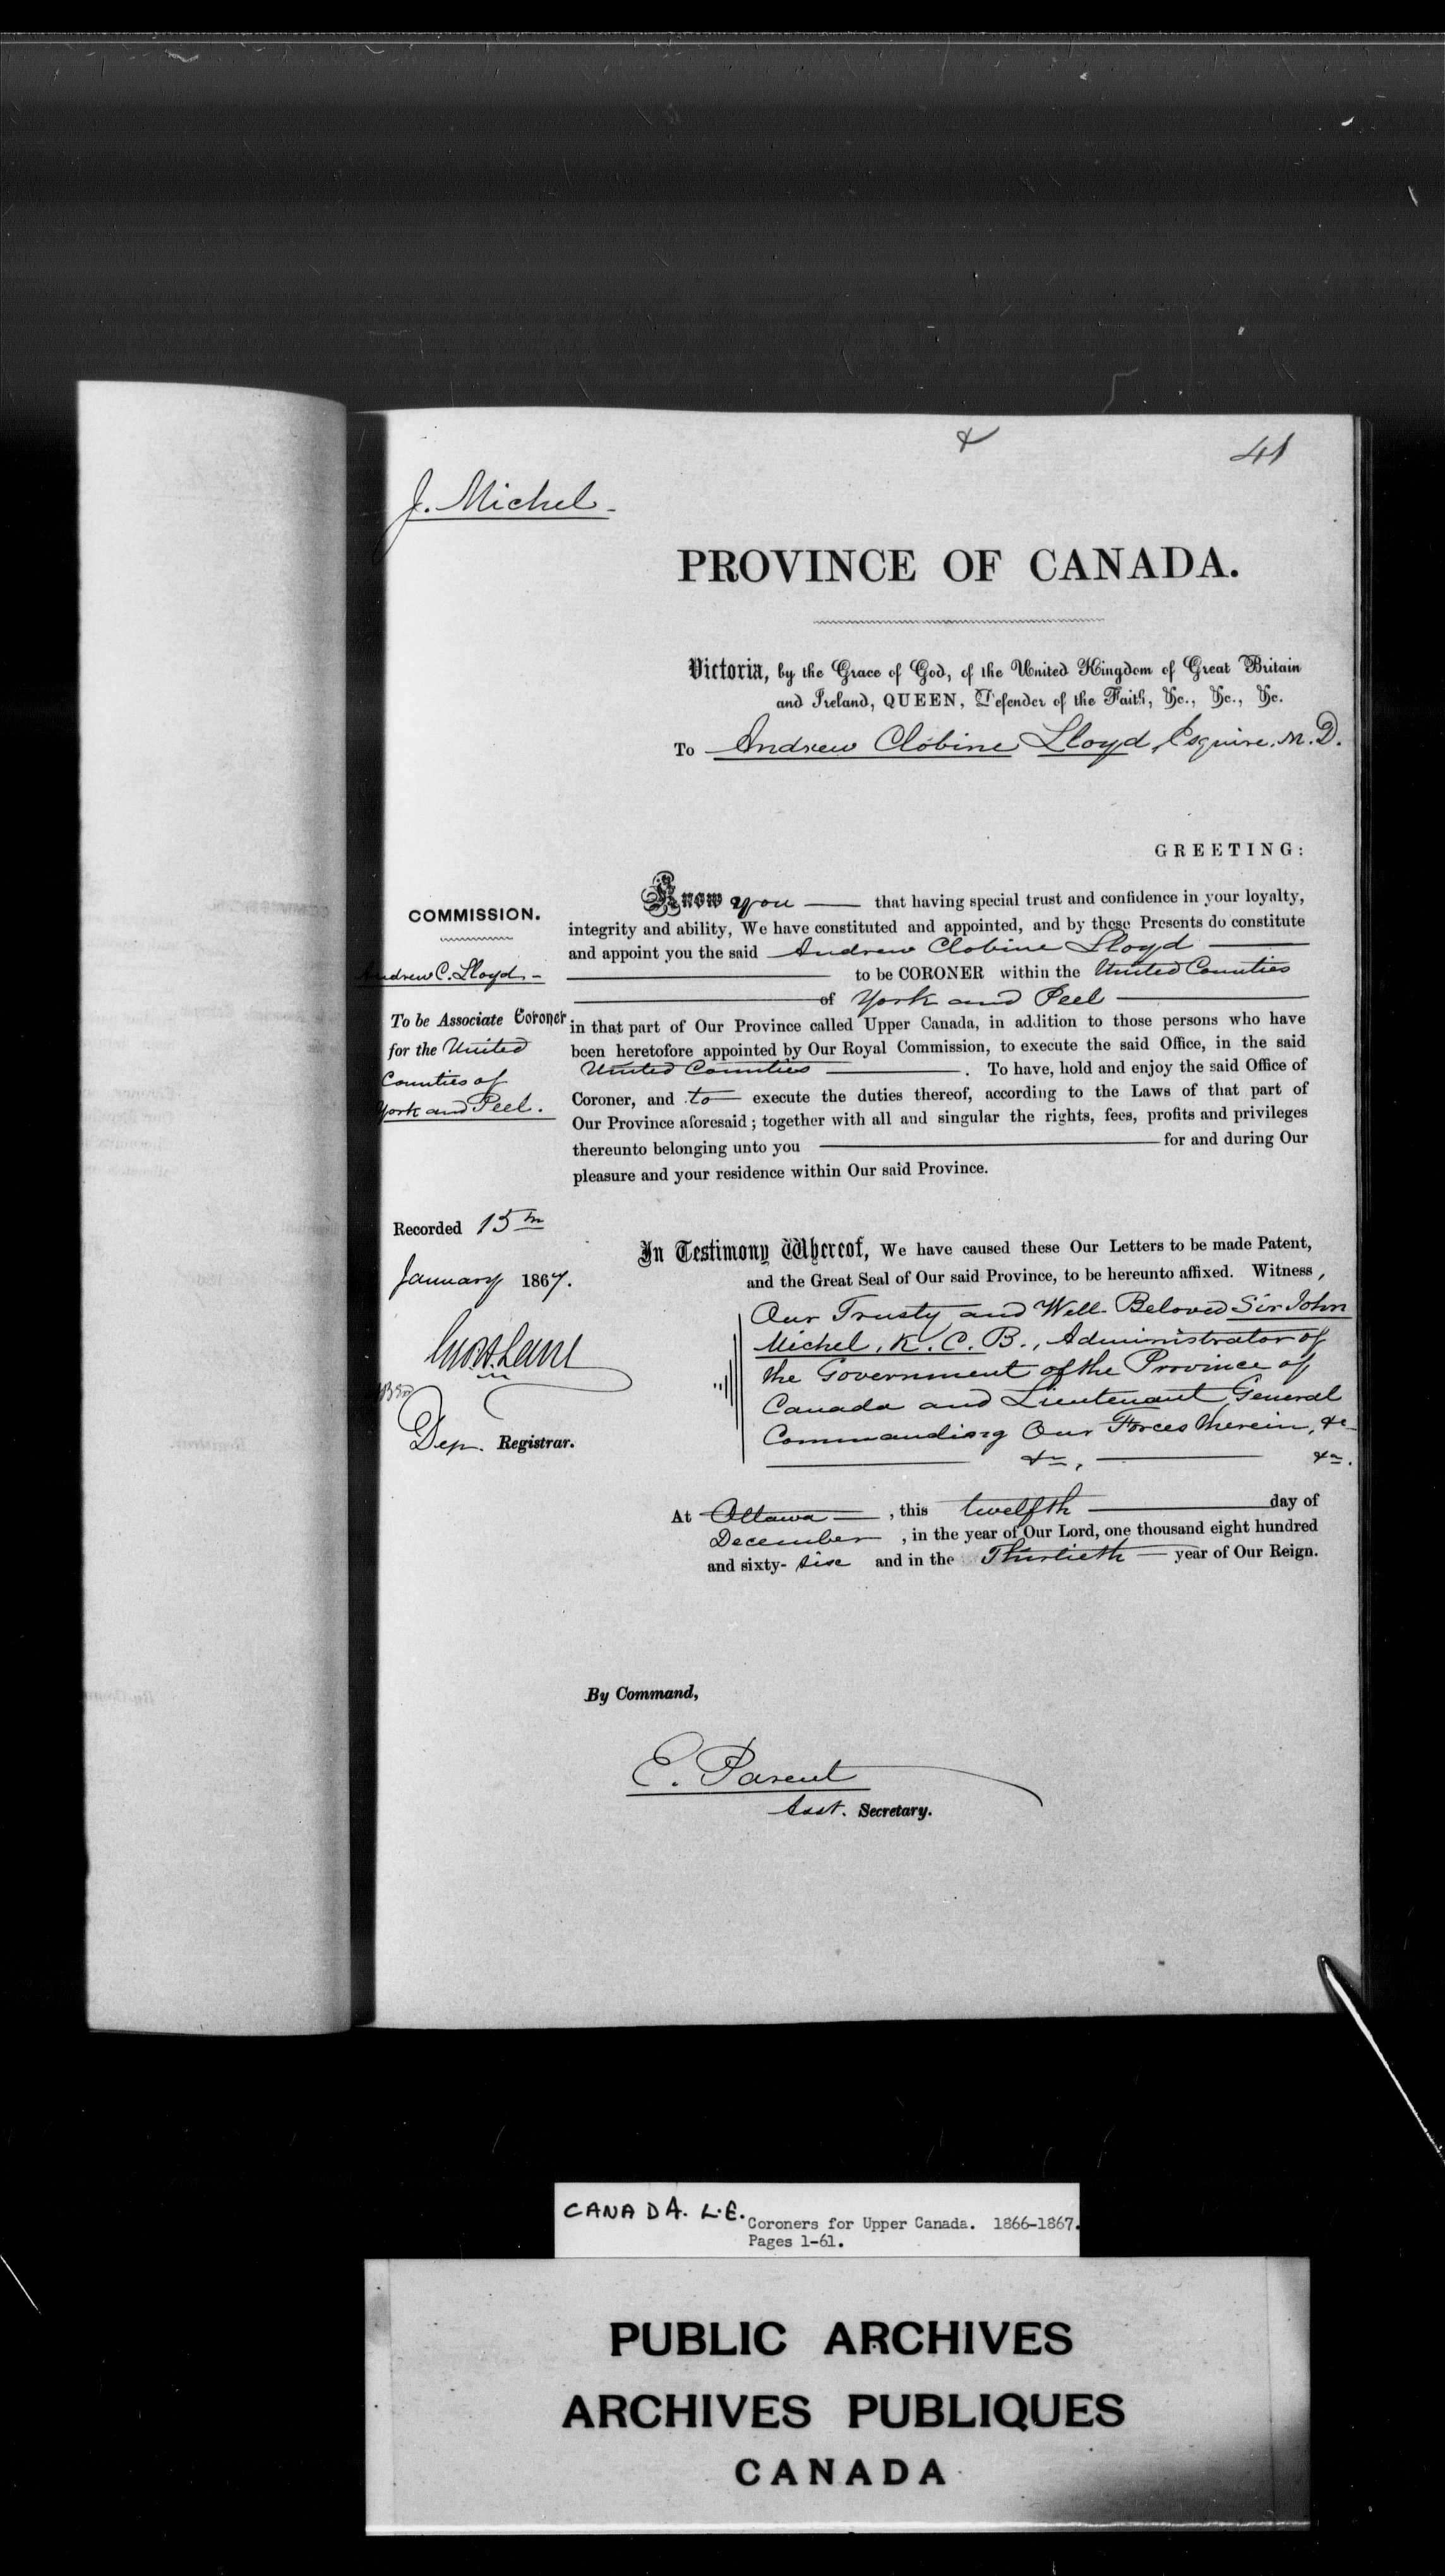 41
J. Michel
PROVINCE OF CANADA.
Victoria, by the Grace of God, of the United Kingdom of Great Britain
and Ireland, QUEEN, Defender of the Faith, &c., &c., &c.
To Andrew Clobine Lloyd, Esquire. M.D.
GREETING:
COMMISSION.
Andrew C. Lloyd.
To be Associate Coroner
for the United
Counties of
York and Peel.
Know you that having special trust and confidence in your loyalty,
integrity and ability, We have constituted and appointed, and by these Presents do constitute
and appoint you the said Andrew Clobine Lloyd
to be CORONER within the United Counties
of York and Peel
in that part of Our Province called Upper Canada, in addition to those persons who have
been heretofore appointed by Our Royal Commission, to execute the said Office, in the said
United Counties. To have, hold and enjoy the said Office of
Coroner, and to execute the duties thereof, according to the Laws of that part of
Our Province aforesaid; together with all and singular the rights, fees, profits and privileges
thereunto belonging unto you for and during Our
pleasure and your residence within Our said Province.
Recorded 15th
January 1867.
Dep. Registrar.
In Testimony Whereof, We have caused these Our Letters to be made Patent,
and the Great Seal of Our said Province, to be hereunto affixed. Witness,
Our Trusty and Well-Beloved Sir John
Michel, K.C.B., Administrator of
the Government of the Province of
Canada and Lieutenant General
Commanding Our Forces therein, &c
&c, &c.
At Ottawa, this twelfth day of
December, in the year of Our Lord, one thousand eight hundred
and sixty-six and in the Thirtieth year of Our Reign.
By Command,
E. Parent
Asst. Secretary.
CANADA. L.E.
Coroners for Upper Canada. 1866-1867.
Pages 1-61.
PUBLIC ARCHIVES
ARCHIVES PUBLIQUES
CANADA